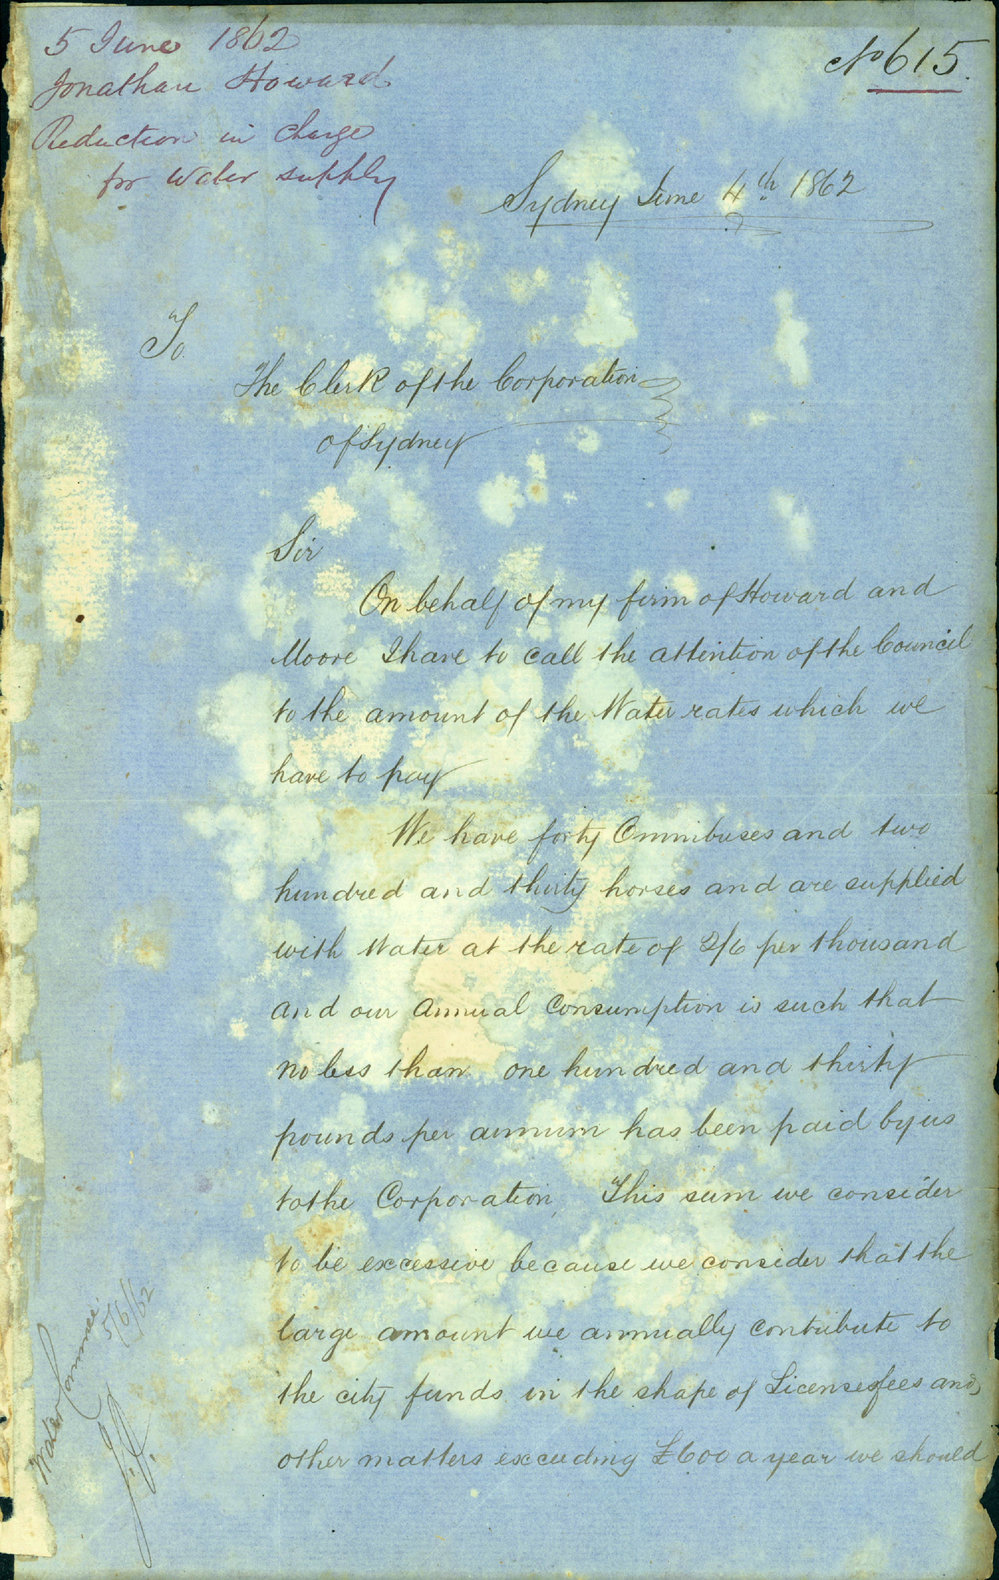 5 June 1862
Jonathan Howard
Reduction in Charge
for Water supply
No 615.
Sydney June 4th 1862
To
The Clerk of the Corporation
of Sydney
Sir
On behalf of my firm of Howard and
Moore I have to call the attention of the Council
to the amount of the Water rates which we
have to pay
We have forty Omnibuses and two
hundred and thirty horses and are supplied
with Water at the rate of 2/6 per thousand
and our Annual Consumption is such that
no less than one hundred and thirty
pounds per annum has been paid by us
to the Corporation, This sum we consider
to be excessive because we consider that the
large amount we annually contribute to
the city funds in the shape of Licenses fees and
other matters exceeding £600 a year we should
Water Commee.
5/6/62